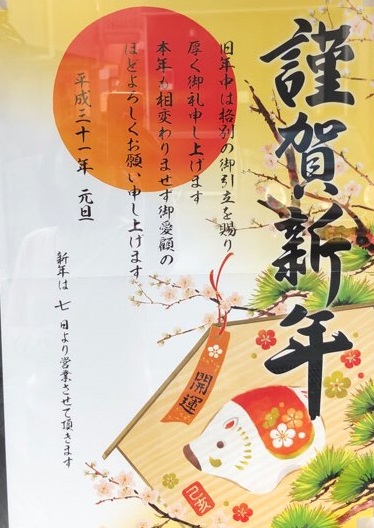 謹賀新年
旧年中は格別の御引立を賜り
厚く御礼申し上げます
本年も相変わりませず御愛顧の
ほどよろしくお願い申し上げます
平成三十一年 元旦
新年は 七 日より営業させて頂きます
開運
己亥